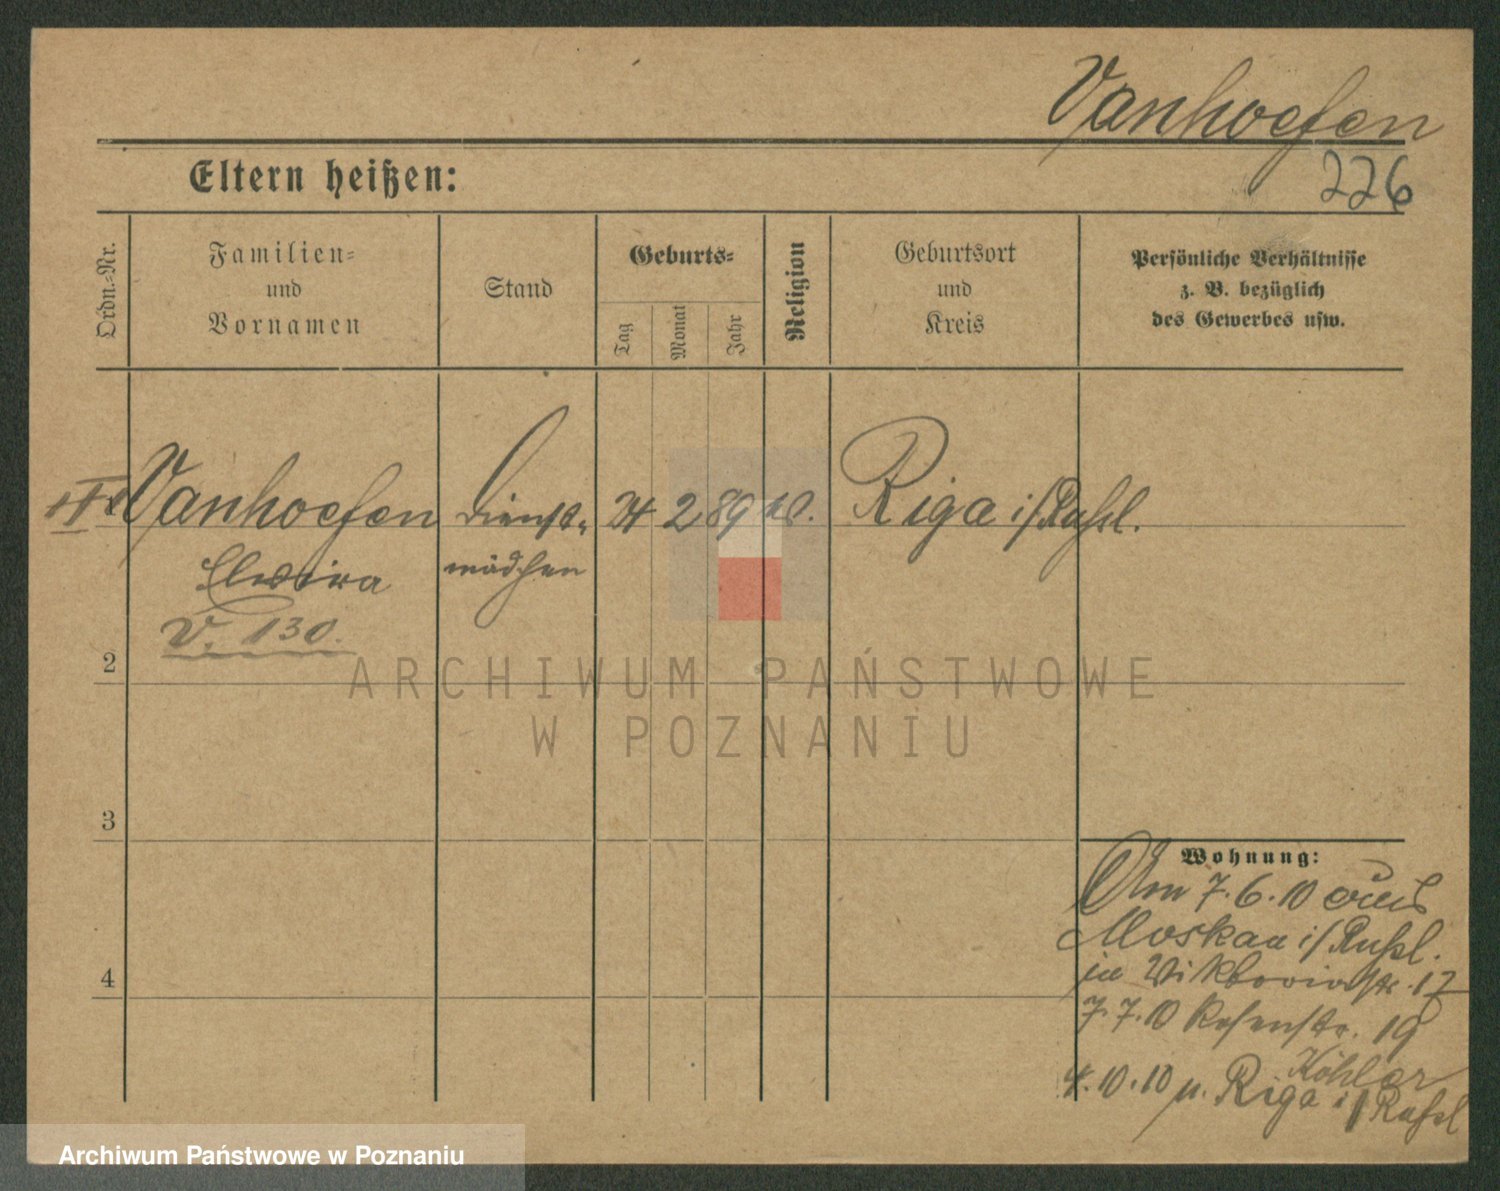 Vanhoefen
226
Eltern heißen:
Ordn.-Nr.
Familien-
und
Vornamen
Stand
Geburts-
Tag
Monat
Jahr
Religion
Geburtsort
und
Kreis
Persönliche Verhältnisse
z. B. bezüglich
des Gewerbes usw.
Vanhoefen Dienst- 24 2 89 Riga i/Rußl.
Elwira mädchen
V. 130.
2
3
4
Wohnung:
Am 7.6.10 aus
Moskau i/Rußl.
in Viktoriastr. 17
7.7.10 Rosenstr. 19
Köhler
4.10.10 n. Riga i/Rußl
ARCHIWUM PAŃSTWOWE
W POZNANIU
Archiwum Państwowe w Poznaniu